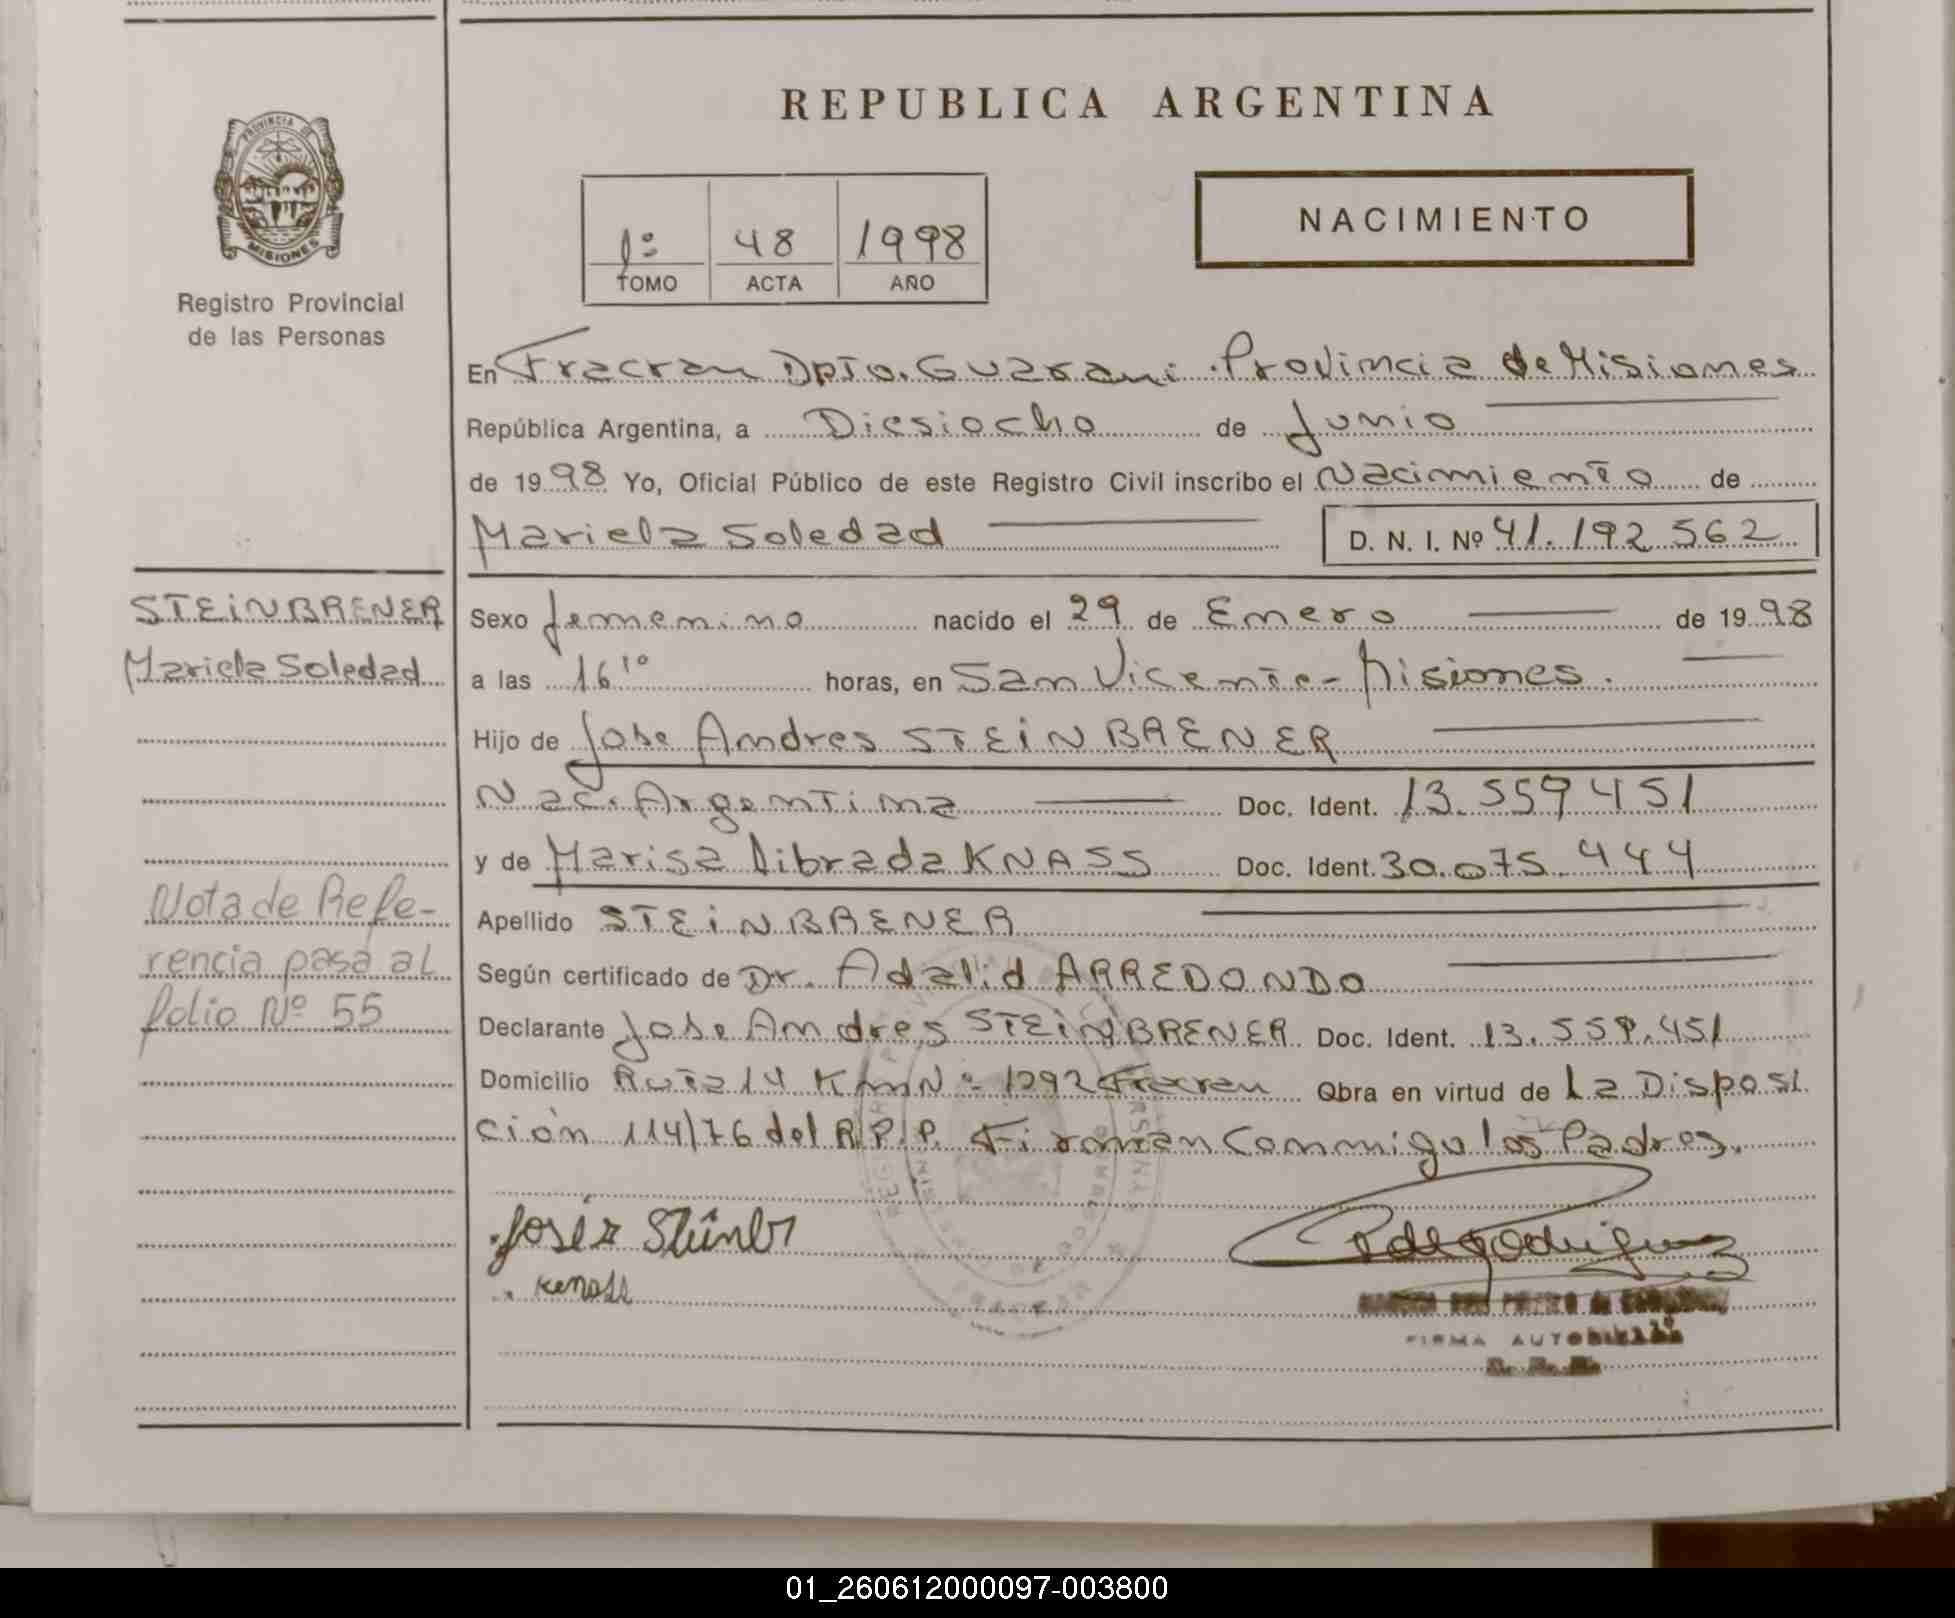 REPUBLICA ARGENTINA
PROVINCIA DE
MISIONES
Registro Provincial
de las Personas
1º 48 1998
TOMO ACTA AÑO
NACIMIENTO
En Fracran Dpto. Guarani. Provincia de Misiones
República Argentina, a Diesiocho de Junio
de 1998 Yo, Oficial Público de este Registro Civil inscribo el Nacimiento de
Mariela Soledad D. N. I. Nº 41.192 562
STEiNBRENER
Mariela Soledad
Sexo femenino nacido el 29 de Enero de 1998
a las 16 10 horas, en San Vicente - Misiones.
Hijo de Jose Andres STEiNBRENER
Nac. Argentina Doc. Ident. 13.559 451
y de Marisa Librada KNASS Doc. Ident. 30.075.444
Nota de Refe-
rencia pasa al
folio Nº 55
Apellido STEiNBRENER
Según certificado de Dr. Adalid ARREDONDO
Declarante Jose Andres STEiNBRENER Doc. Ident. 13.559.451
Domicilio Ruta 14 Km Nº 1292 Fracran Obra en virtud de La Disposi
ción 114/76 del R.P.P. Firman Conmigo los Padres.
FIRMA AUTORIZADA
01_260612000097-003800